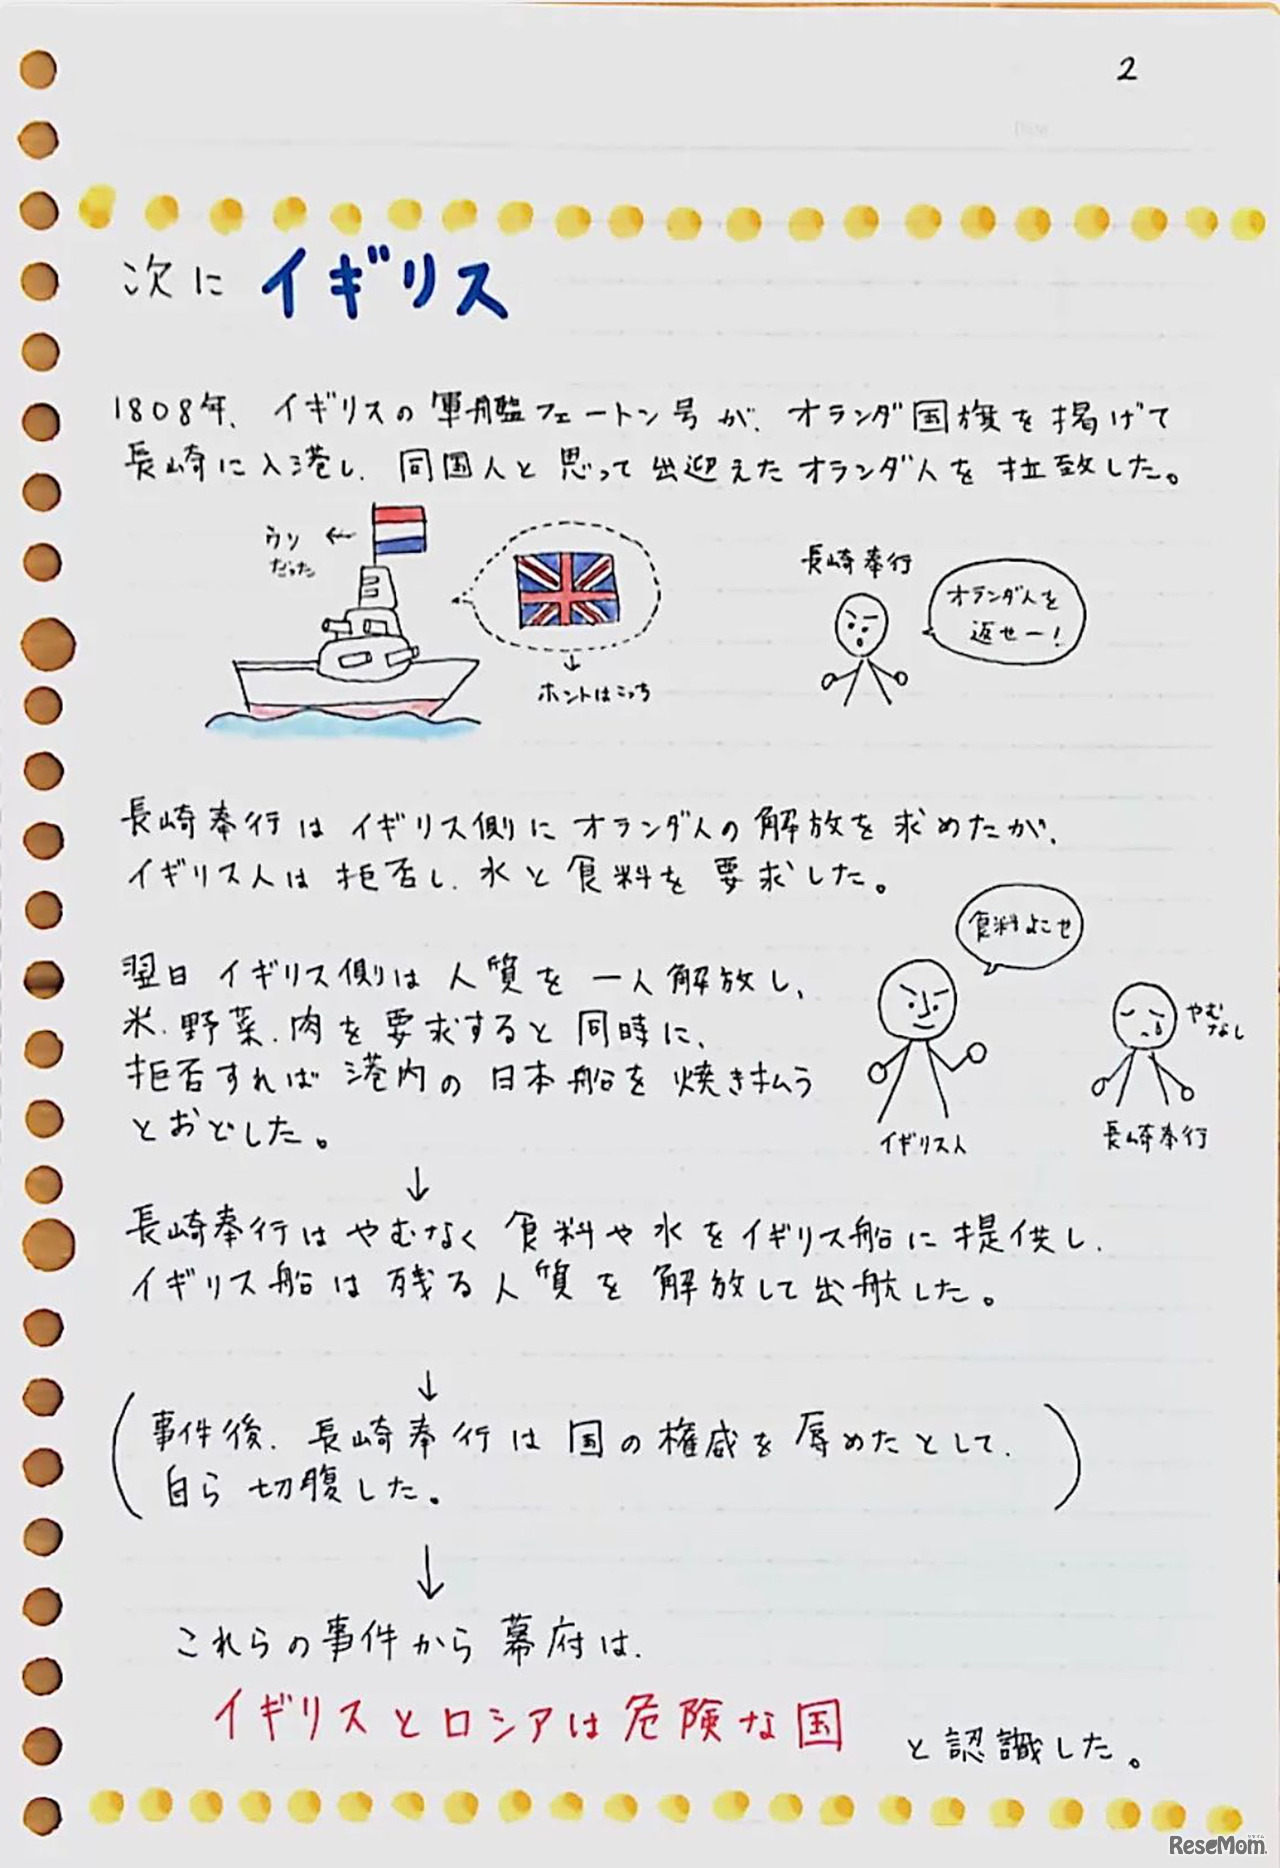 2
次に イギリス
1808年、イギリスの軍艦フェートン号が、オランダ国旗を掲げて
長崎に入港し、同国人と思って出迎えたオランダ人を拉致した。
ウソ
だった
ホントはこっち
長崎奉行
オランダ人を
返せー!
長崎奉行はイギリス側にオランダ人の解放を求めたが、
イギリス人は拒否し、水と食料を要求した。
食料よこせ
翌日イギリス側は人質を一人解放し、
米、野菜、肉を要求すると同時に、
拒否すれば港内の日本船を焼き払う
とおどした。
イギリス人
やむ
なし
長崎奉行
↓
長崎奉行はやむなく食料や水をイギリス船に提供し、
イギリス船は残る人質を解放して出航した。
↓
(事件後、長崎奉行は国の権威を辱めたとして、
自ら切腹した。)
↓
これらの事件から幕府は、
イギリスとロシアは危険な国 と認識した。
ReseMom